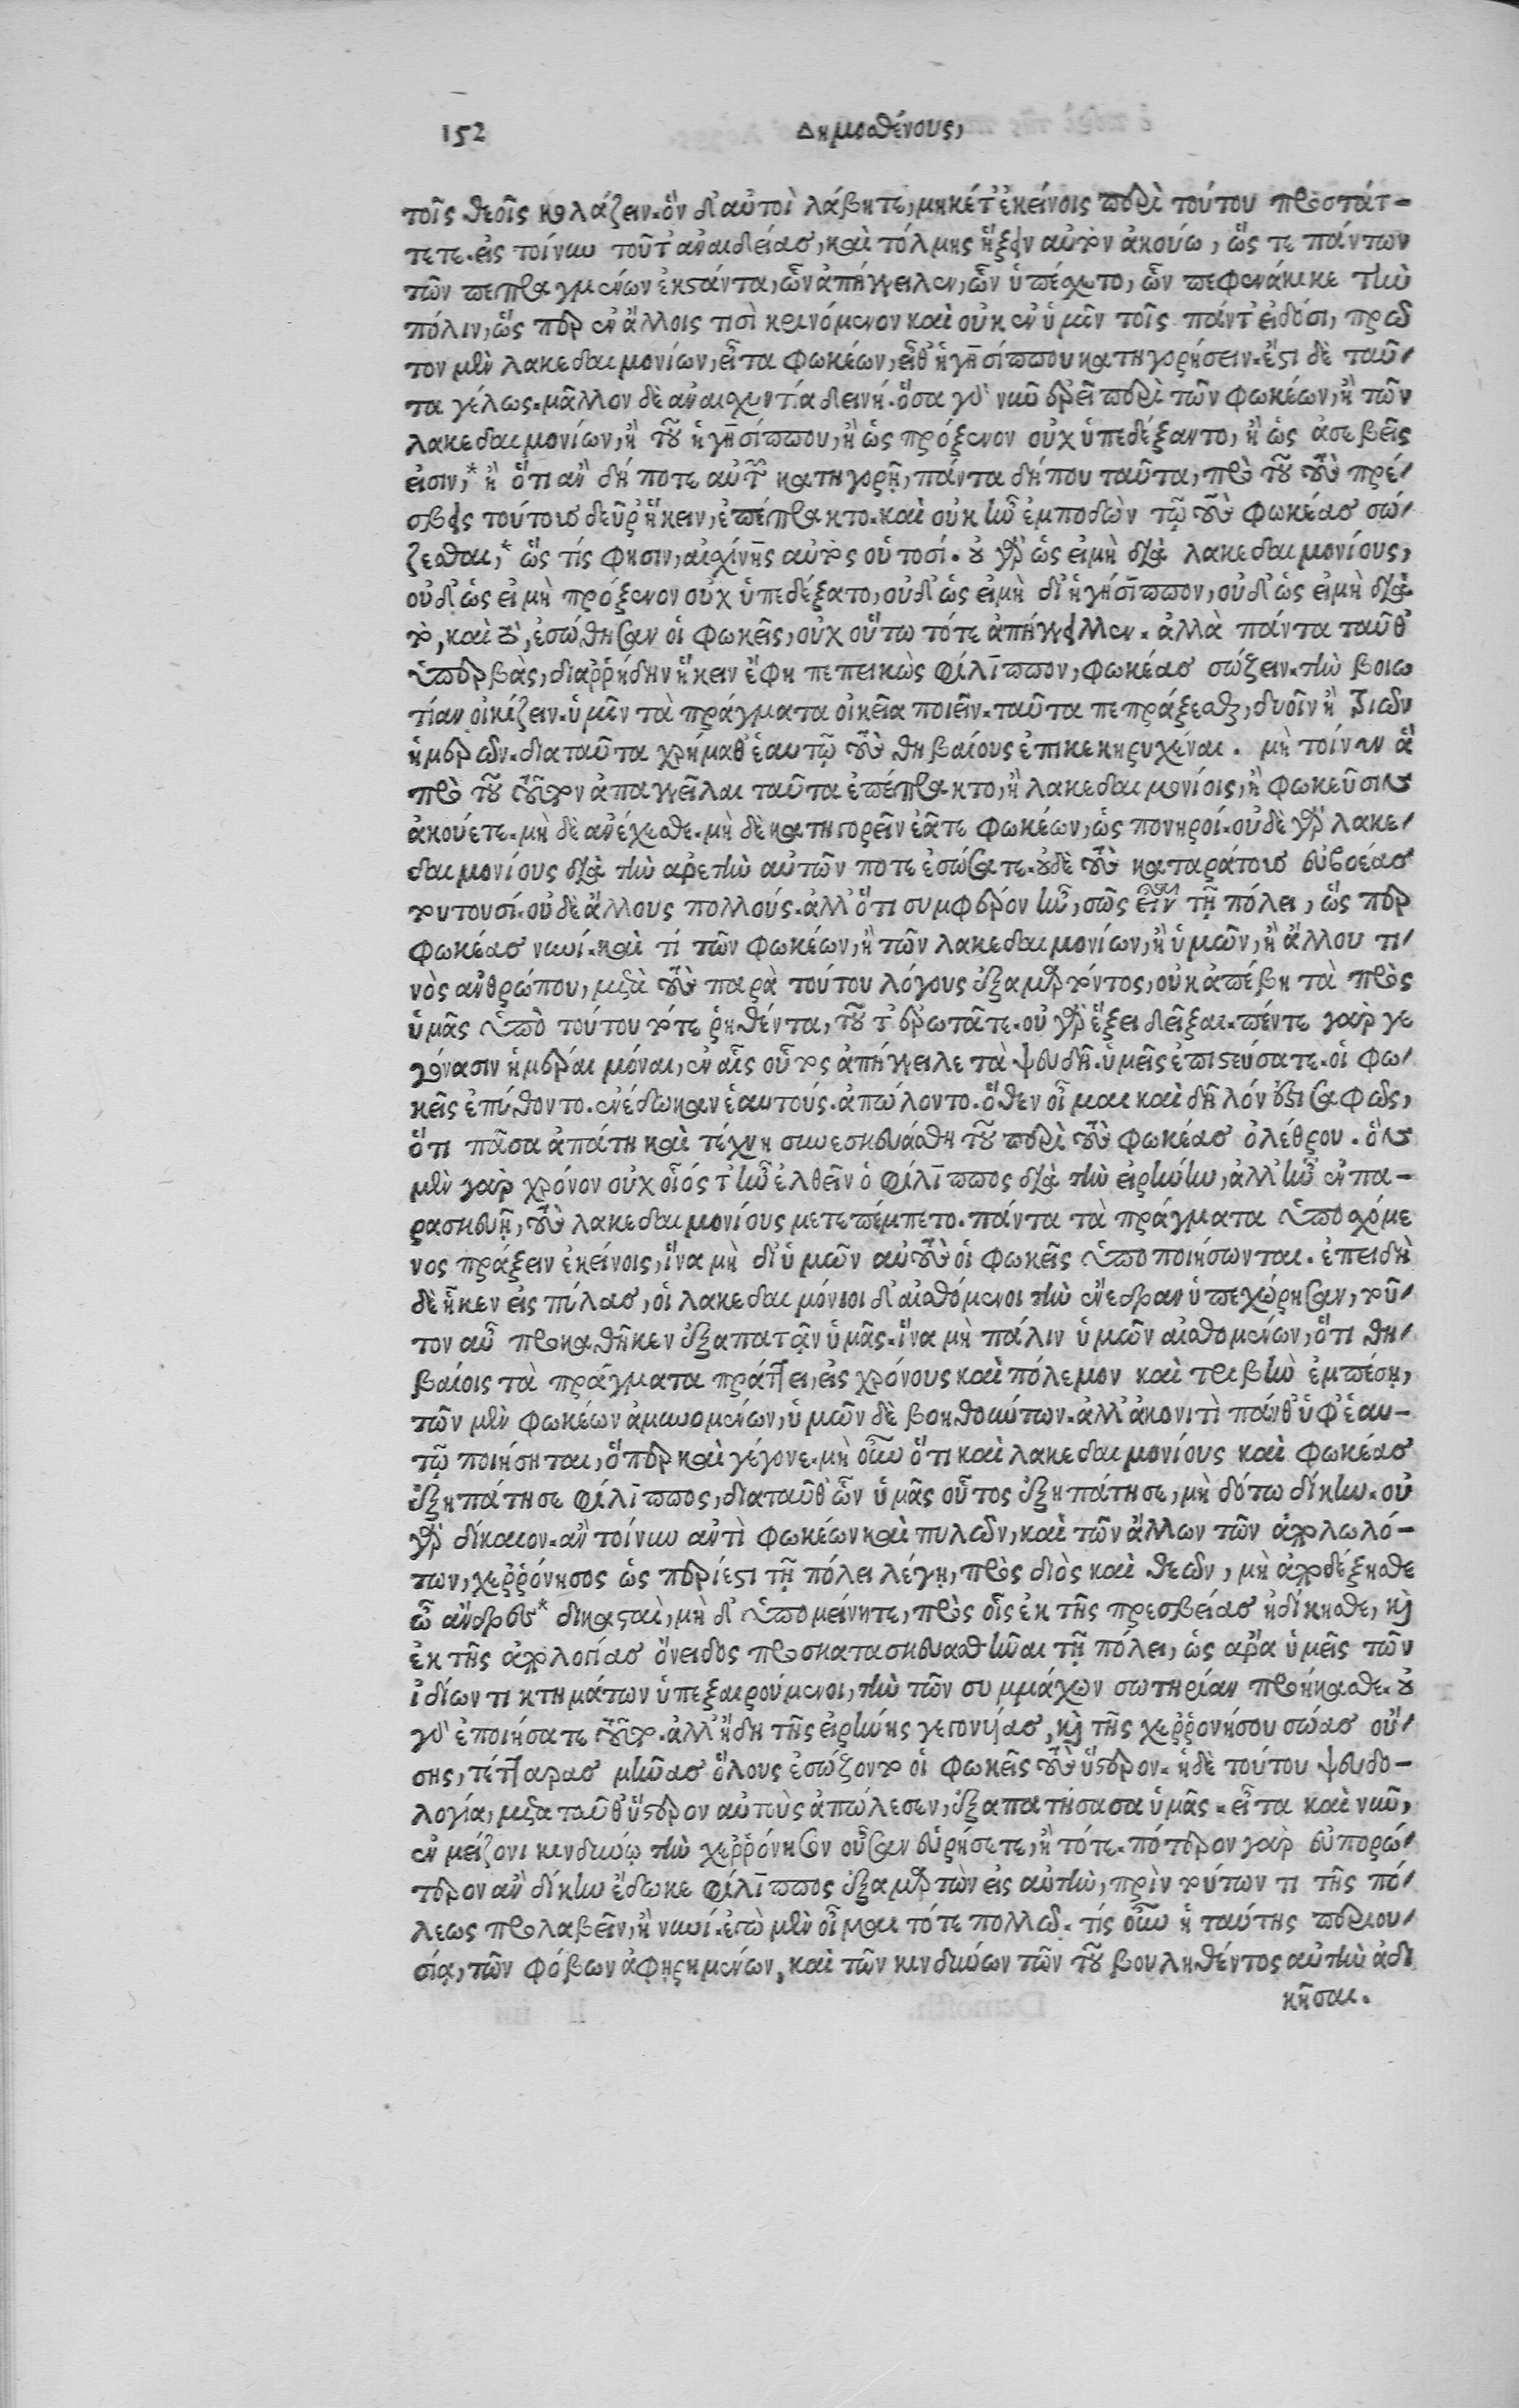 152 Δημοσθένους,
τοῖς θεοῖς κολάζειν. ὃν δ' αὐτοὶ λάβητε, μηκέτ' ἐκείνοις περὶ τούτου προστάτ-
τετε. εἰς τοίνυν τοῦτ' ἀναιδείας, καὶ τόλμης ἥξειν αὐτὸν ἀκούω, ὥς τε πάντων
τῶν πεπραγμένων ἐκστάντα, ὧν ἀπήγγειλεν, ὧν ὑπέσχετο, ὧν πεφενάκικε τὴν
πόλιν, ὥς περ ἐν ἄλλοις τισὶ κρινόμενον καὶ οὐκ ἐν ὑμῖν τοῖς πάντ' εἰδόσι, πρῶ
τον μὲν λακεδαιμονίων, εἶτα φωκέων, εἶθ' ἡγησίππου κατηγορήσειν. ἔστι δὲ ταῦ-
τα γέλως. μᾶλλον δὲ ἀναισχυντία δεινή. ὅσα γὰρ νῦν ἐρεῖ περὶ τῶν φωκέων, ἢ τῶν
λακεδαιμονίων, ἢ τοῦ ἡγησίππου, ἢ ὡς πρόξενον οὐχ ὑπεδέξαντο, ἢ ὡς ἀσεβεῖς
εἰσιν,* ἢ ὅτι ἂν δή ποτε αὐτῶν κατηγορῇ, πάντα δήπου ταῦτα, πρὸ τοῦ τοὺς πρέ-
σβεις τούτους δεῦρ' ἥκειν, ἐπέπρακτο. καὶ οὐκ ἦν ἐμποδὼν τῷ τοὺς φωκέας σώ-
ζεσθαι,* ὥς τίς φησιν, αἰσχίνης αὐτὸς οὑτοσί. οὐ γὰρ ὡς εἰ μὴ διὰ λακεδαιμονίους,
οὐδ' ὡς εἰ μὴ πρόξενον οὐχ ὑπεδέξατο, οὐδ' ὡς εἰ μὴ δι' ἡγήσιππον, οὐδ' ὡς εἰ μὴ διὰ
τὸ, καὶ τὸ, ἐσώθησαν οἱ φωκεῖς, οὐχ οὕτω τότε ἀπήγγειλεν. ἀλλὰ πάντα ταῦθ'
ὑπερβὰς, διαῤῥήδην ἥκειν ἔφη πεπεικὼς φίλιππον, φωκέας σώζειν. τὴν βοιω
τίαν οἰκίζειν. ὑμῖν τὰ πράγματα οἰκεῖα ποιεῖν. ταῦτα πεπράξεσθαι, δυοῖν ἢ τριῶν
ἡμερῶν. διὰ ταῦτα χρήμαθ' ἑαυτῷ τοὺς θηβαίους ἐπικεκηρυχέναι. μὴ τοίνυν ἃ
πρὸ τοῦ τοῦτον ἀπαγγεῖλαι ταῦτα ἐπέπρακτο, ἢ λακεδαιμονίοις, ἢ φωκεῦσιν
ἀκούετε. μὴ δὲ ἀνέχεσθε. μὴ δὲ κατηγορεῖν ἐᾶτε φωκέων, ὡς πονηροί. οὐδὲ γὰρ λακε-
δαιμονίους διὰ τὴν ἀρετὴν αὐτῶν ποτε ἐσώσατε. οὐδὲ τοὺς καταράτους εὐβοέας
τουτουσί. οὐδὲ ἄλλους πολλούς. ἀλλ' ὅτι συμφέρον ἦν, σῶς εἶναι τῇ πόλει, ὥς περ
φωκέας νυνί. καὶ τί τῶν φωκέων, ἢ τῶν λακεδαιμονίων, ἢ ὑμῶν, ἢ ἄλλου τι-
νὸς ἀνθρώπου, μετὰ τοὺς παρὰ τούτου λόγους ἐξαμαρτόντος, οὐκ ἀπέβη τὰ πρὸς
ὑμᾶς ὑπὸ τούτου τότε ῥηθέντα, τοῦτ' ἐρωτᾶτε. οὐ γὰρ ἕξει δεῖξαι. πέντε γὰρ γε
γόνασιν ἡμέραι μόναι, ἐν αἷς οὗτος ἀπήγγειλε τὰ ψευδῆ. ὑμεῖς ἐπιστεύσατε. οἱ φω-
κεῖς ἐπύθοντο. ἐνέδωκαν ἑαυτούς. ἀπώλοντο. ὅθεν οἶμαι καὶ δῆλόν ἐστι σαφῶς,
ὅτι πᾶσα ἀπάτη καὶ τέχνη συνεσκευάσθη τοῦ περὶ τοὺς φωκέας ὀλέθρου. ὃν
μὲν γὰρ χρόνον οὐχ οἷός τ' ἦν ἐλθεῖν ὁ φίλιππος διὰ τὴν εἰρήνην, ἀλλ' ἦν ἐν πα-
ρασκευῇ, τοὺς λακεδαιμονίους μετεπέμπετο. πάντα τὰ πράγματα ὑποσχόμε
νος πράξειν ἐκείνοις, ἵνα μὴ δι' ὑμῶν αὐτοὺς οἱ φωκεῖς ὑποποιήσωνται. ἐπειδὴ
δὲ ἧκεν εἰς πύλας, οἱ λακεδαιμόνιοι δ' αἰσθόμενοι τὴν ἐνέδραν ὑπεχώρησαν, τοῦ-
τον αὖ προκαθῆκεν ἐξαπατᾷν ὑμᾶς. ἵνα μὴ πάλιν ὑμῶν αἰσθομένων, ὅτι θη-
βαίοις τὰ πράγματα πράττει, εἰς χρόνους καὶ πόλεμον καὶ τριβὴν ἐμπέσῃ,
τῶν μὲν φωκέων ἀμυνομένων, ὑμῶν δὲ βοηθούντων. ἀλλ' ἀκονιτὶ πάνθ' ὑφ' ἑαυ-
τῷ ποιήσηται, ὅπερ καὶ γέγονε. μὴ οὖν ὅτι καὶ λακεδαιμονίους καὶ φωκέας
ἐξηπάτησε φίλιππος, διὰ ταῦθ' ὧν ὑμᾶς οὗτος ἐξηπάτησε, μὴ δότω δίκην. οὐ
γὰρ δίκαιον. ἂν τοίνυν ἀντὶ φωκέων καὶ πυλῶν, καὶ τῶν ἄλλων τῶν ἀπολωλό-
των, χεῤῥόνησος ὡς περίεστι τῇ πόλει λέγῃ, πρὸς διὸς καὶ θεῶν, μὴ ἀποδέξησθε
ὦ ἄνδρες* δικασταὶ, μὴ δ' ὑπομείνητε, πρὸς οἷς ἐκ τῆς πρεσβείας ἠδίκησθε, καὶ
ἐκ τῆς ἀπολογίας ὄνειδος προσκατασκευασθῆναι τῇ πόλει, ὡς ἄρα ὑμεῖς τῶν
ἰδίων τι κτημάτων ὑπεξαιρούμενοι, τὴν τῶν συμμάχων σωτηρίαν προήκασθε. οὐ
γὰρ ἐποιήσατε τοῦτο. ἀλλ' ἤδη τῆς εἰρήνης γεγονυίας, καὶ τῆς χεῤῥονήσου σώας οὔ-
σης, τέτταρας μῆνας ὅλους ἐσώζοντο οἱ φωκεῖς τοὺς ὕστερον. ἡ δὲ τούτου ψευδο-
λογία, μετὰ ταῦθ' ὕστερον αὐτοὺς ἀπώλεσεν, ἐξαπατήσασα ὑμᾶς. εἶτα καὶ νῦν,
ἐν μείζονι κινδύνῳ τὴν χεῤῥόνησον οὖσαν εὑρήσετε, ἢ τότε. πότερον γὰρ εὐπορώ-
τερον ἂν δίκην ἔδωκε φίλιππος ἐξαμαρτὼν εἰς αὐτὴν, πρὶν τούτων τι τῆς πό-
λεως προλαβεῖν, ἢ νυνί. ἐγὼ μὲν οἶμαι τότε πολλῶ. τίς οὖν ἡ ταύτης περιου-
σία, τῶν φόβων ἀφῃρημένων, καὶ τῶν κινδύνων τῶν τοῦ βουληθέντος αὐτὴν ἀδι
κῆσαι.